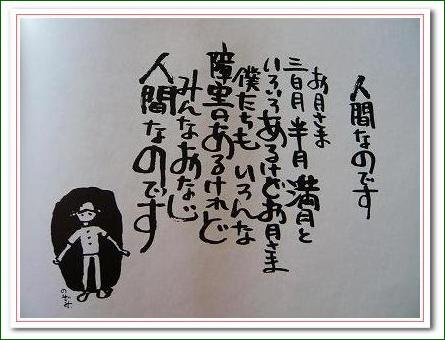 人間なのです
お月さま
三日月 半月 満月と
いろいろあるけどお月さま
僕たちも いろんな
障害のあるけれど
みんなおなじ
人間なのです
のぞみ